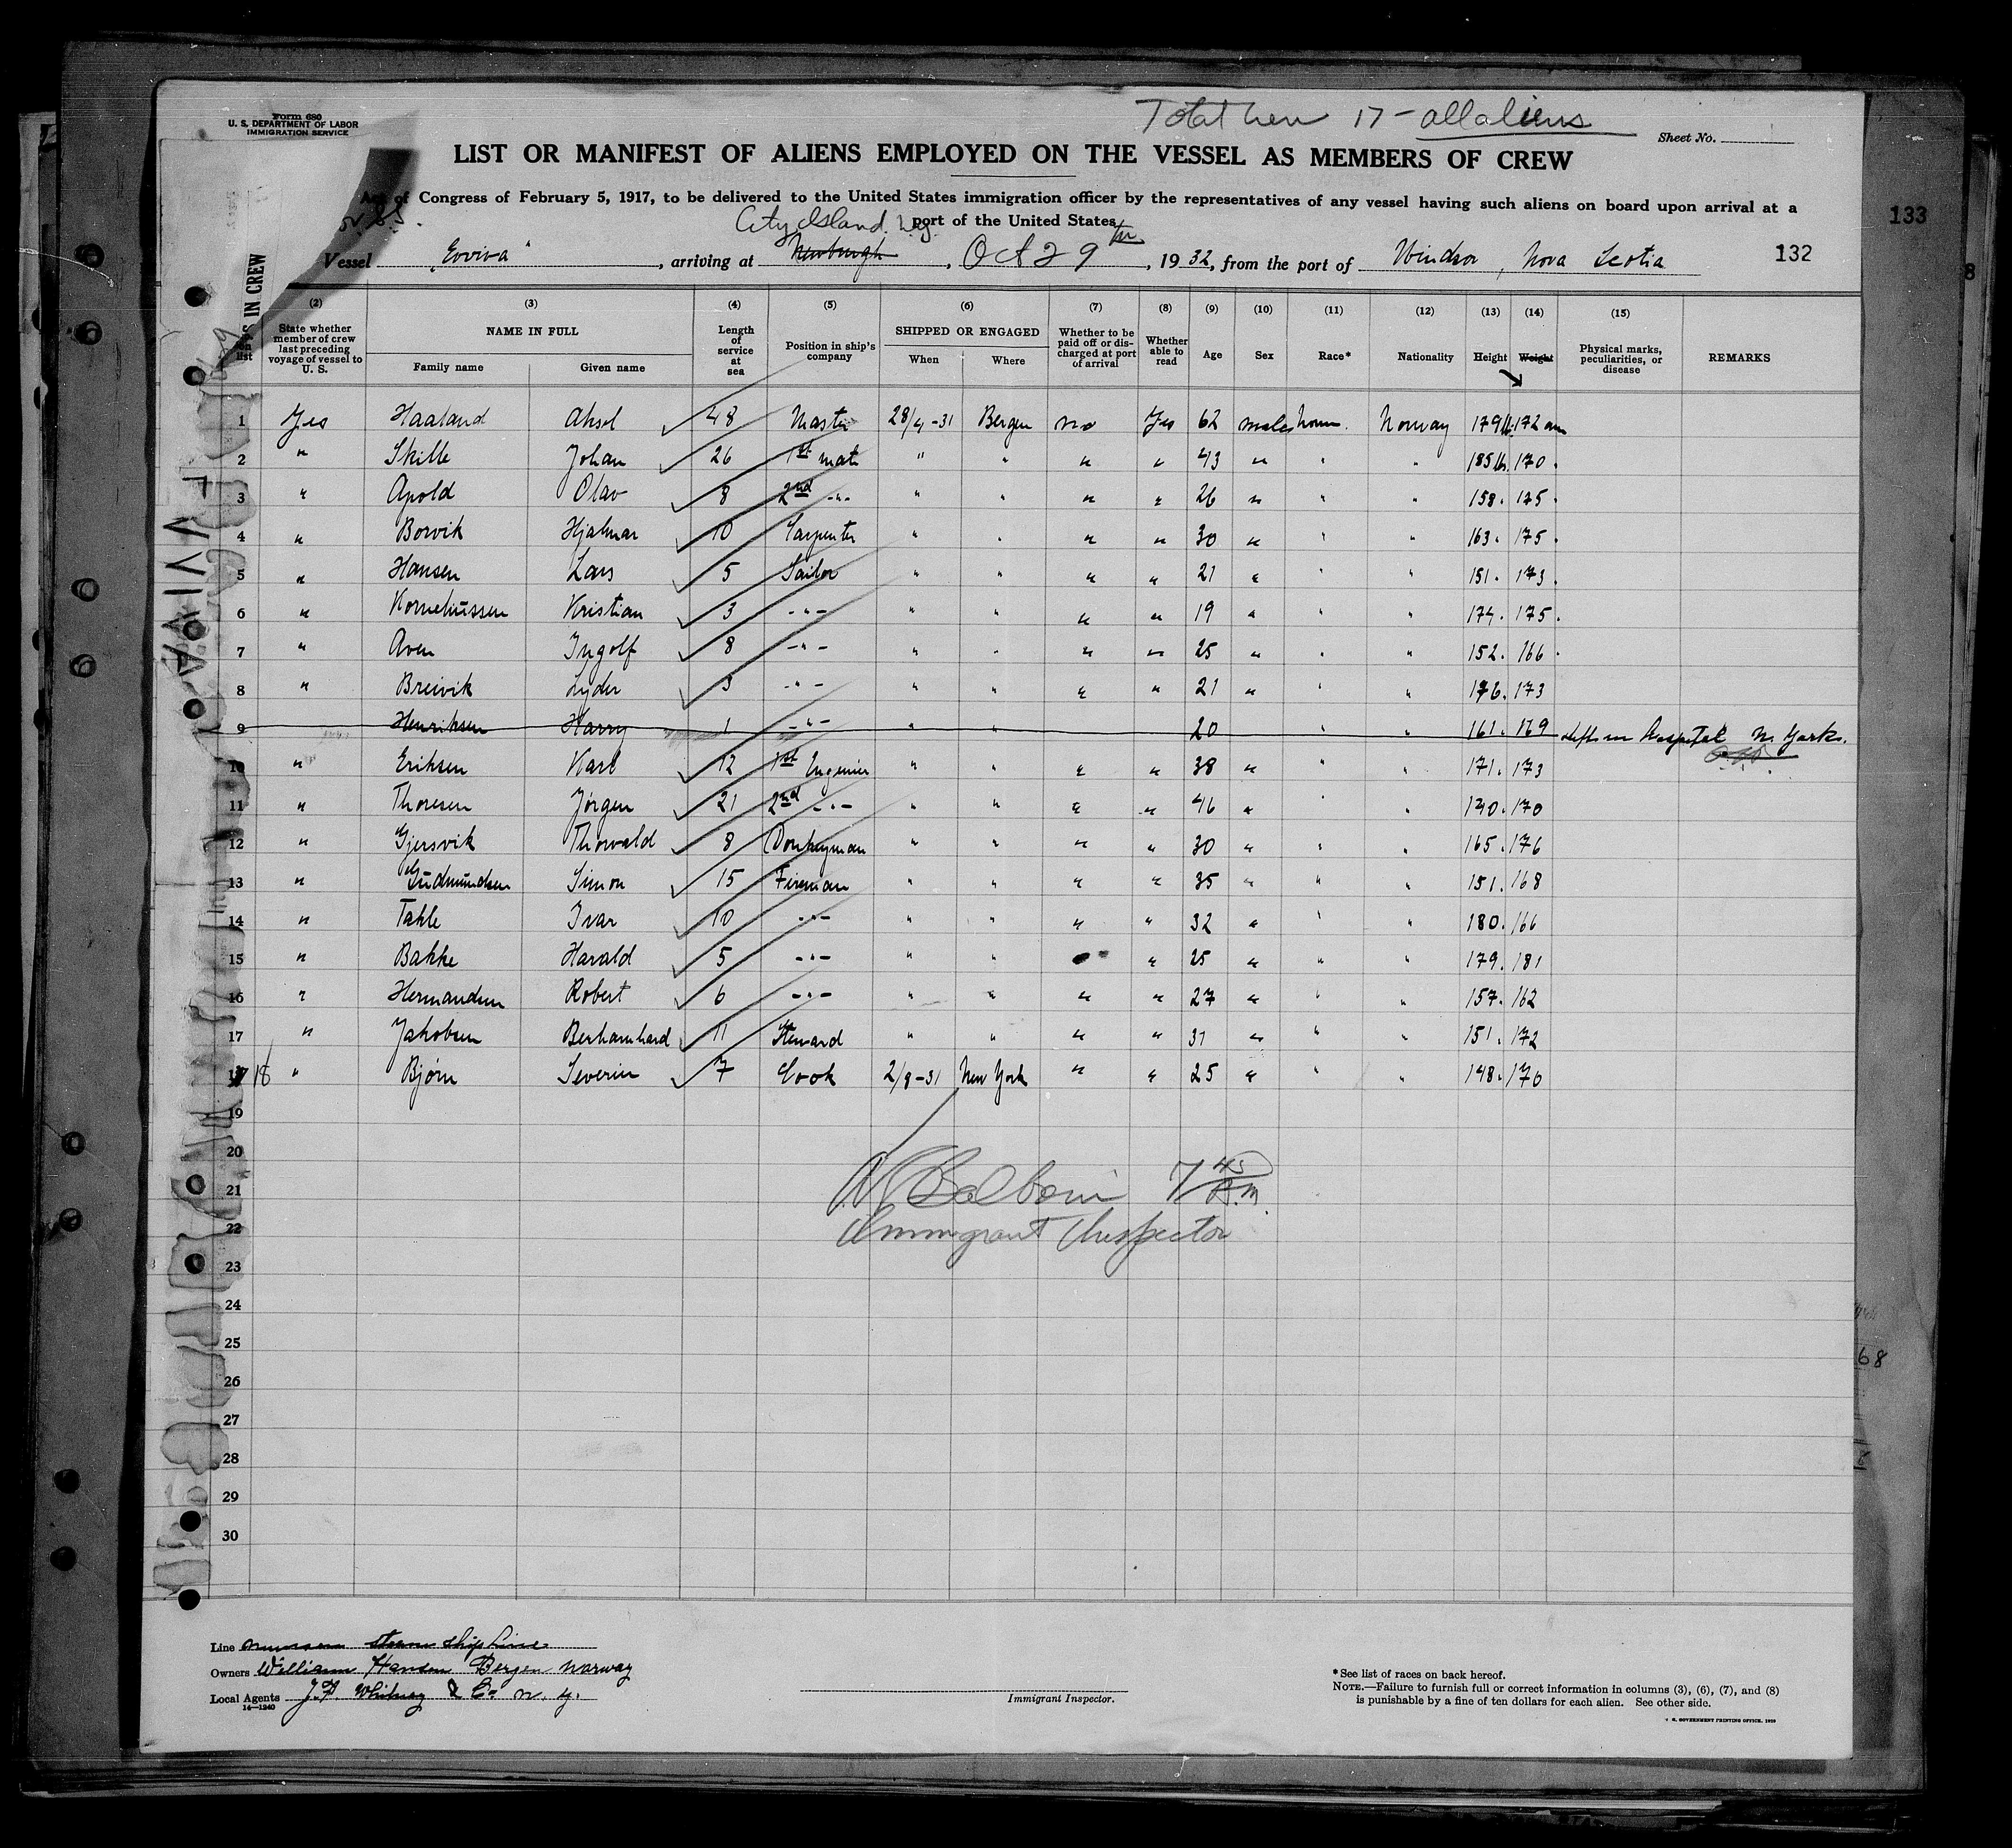 Form 680
U. S. DEPARTMENT OF LABOR
IMMIGRATION SERVICE
Total Crew 17 - all aliens
Sheet No.
LIST OR MANIFEST OF ALIENS EMPLOYED ON THE VESSEL AS MEMBERS OF CREW
Act of Congress of February 5, 1917, to be delivered to the United States immigration officer by the representatives of any vessel having such aliens on board upon arrival at a
port of the United States
City Island N.Y.
133
Vessel "Evviva", arriving at Newburgh, Oct 29th, 1932, from the port of Windsor, Nova Scotia 132
(2) (3) (4) (5) (6) (7) (8) (9) (10) (11) (12) (13) (14) (15)
State whether member of crew last preceding voyage of vessel to U. S. NAME IN FULL Family name Given name Length of service at sea Position in ship's company SHIPPED OR ENGAGED When Where Whether to be paid off or discharged at port of arrival Whether able to read Age Sex Race* Nationality Height Weight Physical marks, peculiarities, or disease REMARKS
1 Yes Haaland Aksel 48 Master 28/4-31 Bergen no Yes 62 male Norw. Norway 179 lb. 172 cm
2 " Skille Johan 26 1st mate " " " " 43 " " " 185 lb. 170.
3 " Apold Olav 8 2nd -"- " " " " 26 " " " 158. 175.
4 " Borvik Hjalmar 10 Carpenter " " " " 30 " " " 163. 175.
5 " Hansen Lars 5 Sailor " " " " 21 " " " 151. 173.
6 " Korneliussen Kristian 3 -"- " " " " 19 " " " 174. 175.
7 " Aven Ingolf 8 -"- " " " " 25 " " " 152. 166.
8 " Breivik Lyder 3 -"- " " " " 21 " " " 176. 173
9 Henriksen Harry 1 -"- " " 20 " " 161. 169 left in hospital N. York.
10 " Eriksen Karl 12 1st Engenier " " " " 38 " " " 171. 173
11 " Thoresen Jørgen 21 2nd -"- " " " " 46 " " " 170
12 " Gjersvik Thorvald 8 Donkeyman " " " " 30 " " " 165. 176
13 " Gudmundsen Simon 15 Fireman " " " " 35 " " " 151. 168
14 " Takle Ivar 10 -"- " " " " 32 " " " 180. 166
15 " Bakke Harald 5 -"- " " " " 25 " " " 179. 181
16 " Hermansen Robert 6 -"- " " " " 27 " " " 157. 162
17 " Jakobsen Berharnhard 11 Steward " " " " 31 " " " 151. 172
18 " Bjørn Severin 7 Cook 2/9-31 New York " " 25 " " " 148. 170
19
20
21
22
23
24
25
26
27
28
29
30
EVVIVA
7 45 A.m.
Immigrant Inspector
68
Line Munson Steam Ship Line
Owners William Hansen Bergen Norway
Local Agents J. F. Whitney & Co N. Y.
14—1240
Immigrant Inspector.
*See list of races on back hereof.
NOTE.—Failure to furnish full or correct information in columns (3), (6), (7), and (8)
is punishable by a fine of ten dollars for each alien. See other side.
U. S. GOVERNMENT PRINTING OFFICE